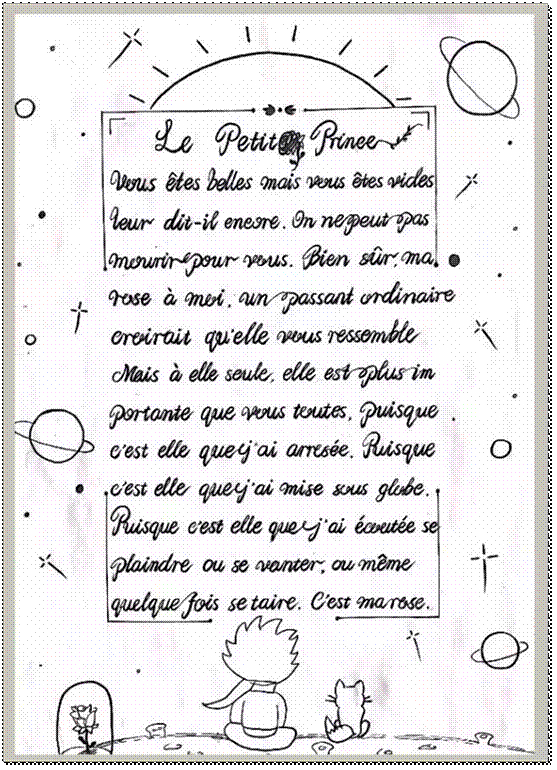 Le Petit Prince
Vous êtes belles mais vous êtes vides
leur dit-il encore. On ne peut pas
mourir pour vous. Bien sûr, ma
rose à moi, un passant ordinaire
croirait qu'elle vous ressemble
Mais à elle seule, elle est plus im
portante que vous toutes, puisque
c'est elle que j'ai arrosée. Puisque
c'est elle que j'ai mise sous globe.
Puisque c'est elle que j'ai écoutée se
plaindre ou se vanter, ou même
quelque fois se taire. C'est ma rose.